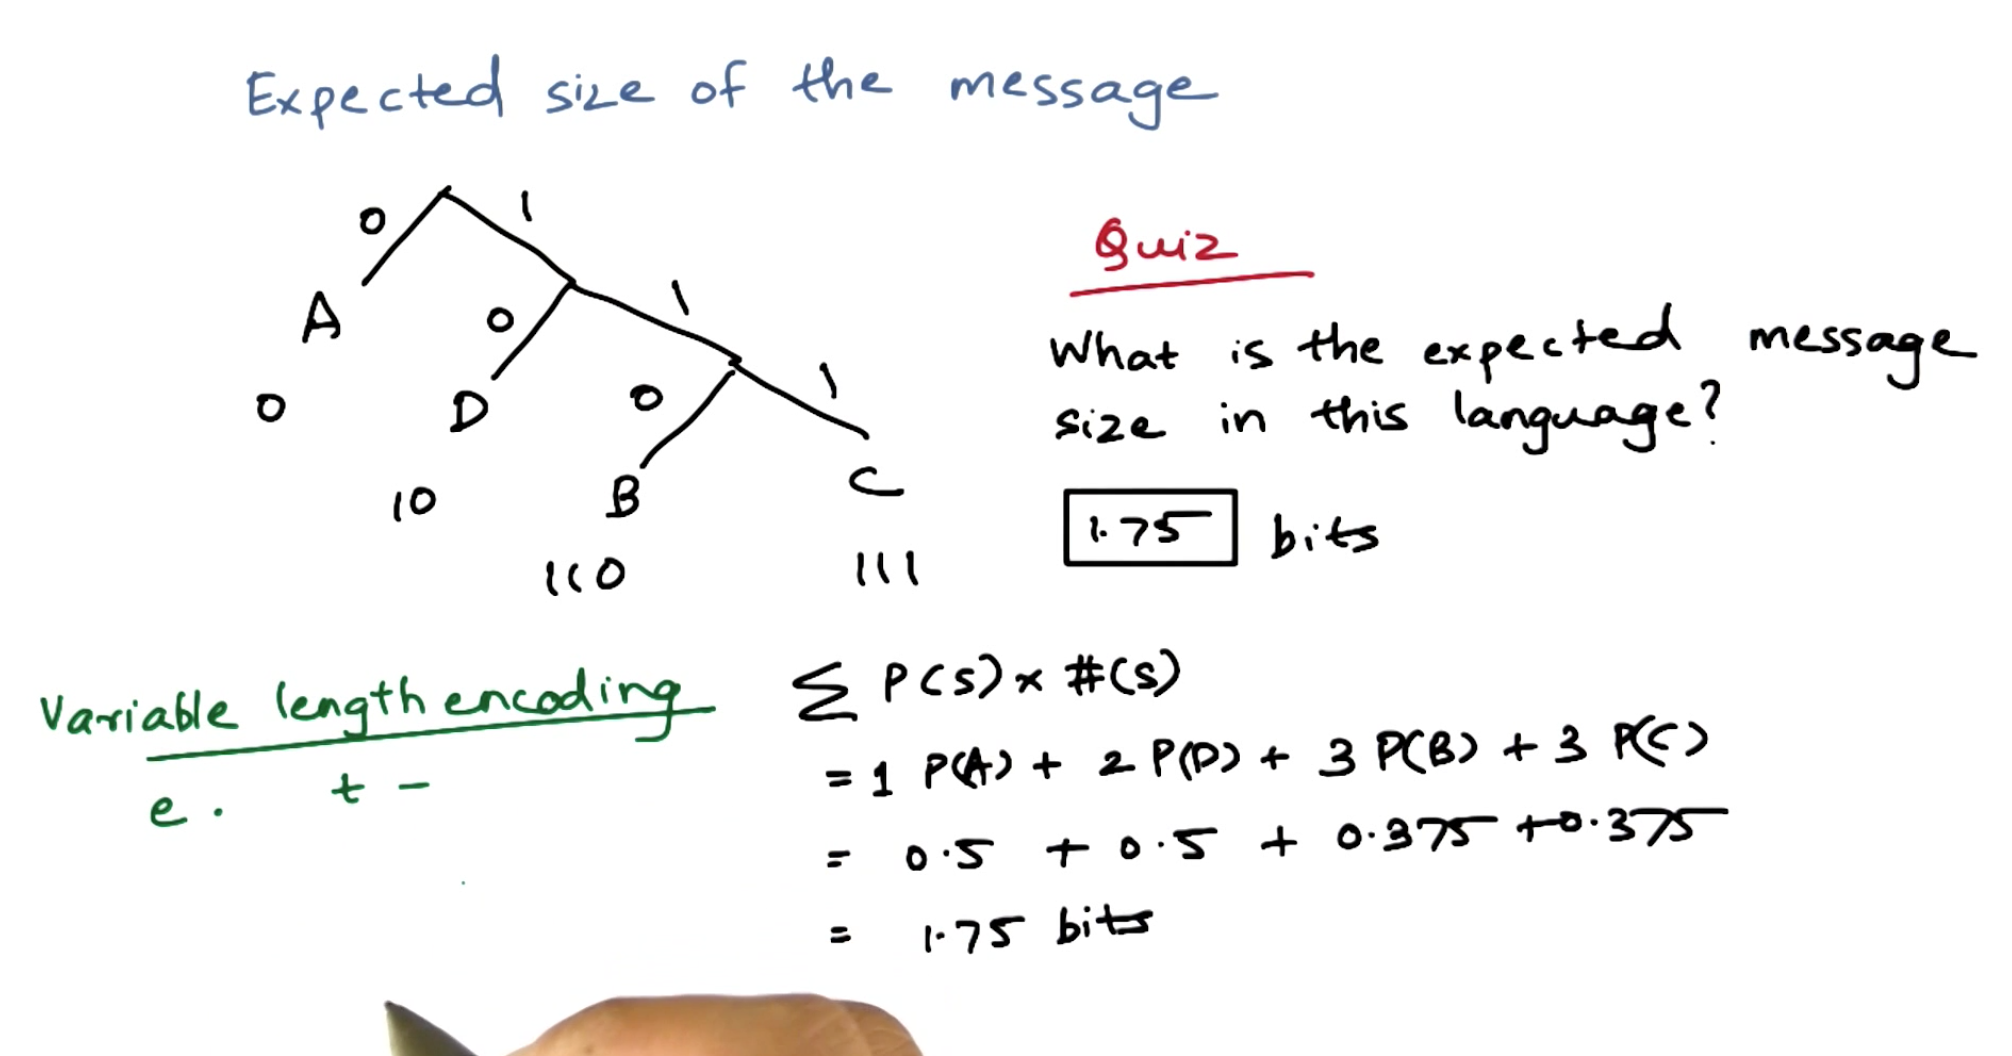 Expected size of the message
0 1
A 0 1
0 D 0 1
10 B C
110 111
Quiz
What is the expected message
size in this language?
1.75 bits
Variable length encoding
e . t -
Σ P(s) x #(s)
= 1 P(A) + 2 P(D) + 3 P(B) + 3 P(C)
= 0.5 + 0.5 + 0.375 + 0.375
= 1.75 bits